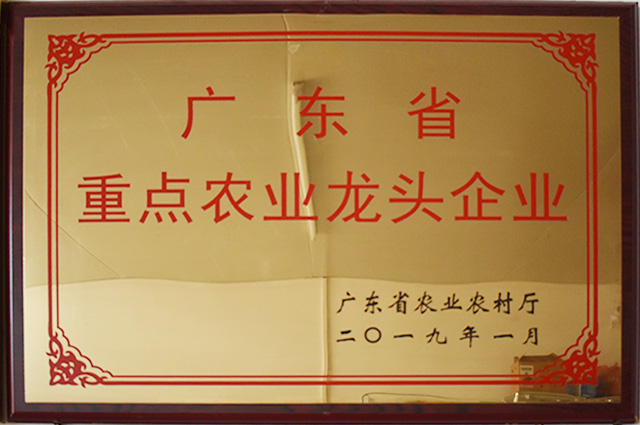 广东省
重点农业龙头企业
广东省农业农村厅
二〇一九年一月